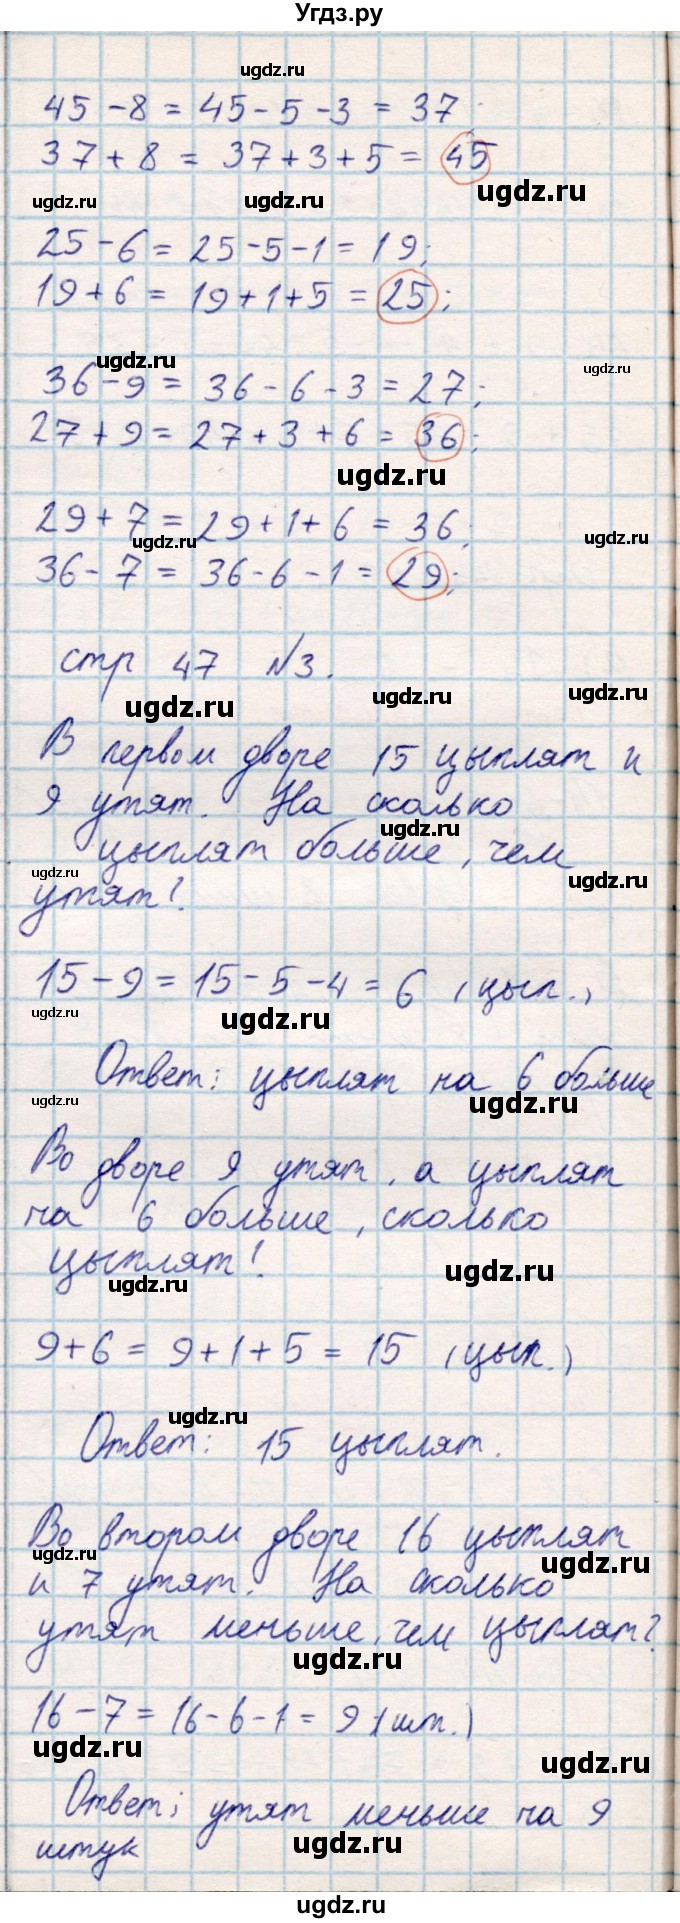 Угдз.ру
ugdz.ru
45 - 8 = 45 - 5 - 3 = 37;
37 + 8 = 37 + 3 + 5 = 45
ugdz.ru ugdz.ru ugdz.ru
25 - 6 = 25 - 5 - 1 = 19;
19 + 6 = 19 + 1 + 5 = 25;
ugdz.ru ugdz.ru
36 - 9 = 36 - 6 - 3 = 27;
27 + 9 = 27 + 3 + 6 = 36;
ugdz.ru
29 + 7 = 29 + 1 + 6 = 36;
ugdz.ru ugdz.ru
36 - 7 = 36 - 6 - 1 = 29;
стр 47 №3.
ugdz.ru ugdz.ru ugdz.ru
В первом дворе 15 цыплят и
9 утят. На сколько
ugdz.ru
цыплят больше, чем
ugdz.ru ugdz.ru
утят?
15 - 9 = 15 - 5 - 4 = 6 (цып.)
ugdz.ru ugdz.ru
Ответ: цыплят на 6 больше
ugdz.ru ugdz.ru
Во дворе 9 утят, а цыплят
на 6 больше, сколько
цыплят?
ugdz.ru ugdz.ru
9 + 6 = 9 + 1 + 5 = 15 (цып.)
ugdz.ru
Ответ: 15 цыплят.
Во втором дворе 16 цыплят
ugdz.ru ugdz.ru
и 7 утят. На сколько
утят меньше, чем цыплят?
ugdz.ru
16 - 7 = 16 - 6 - 1 = 9 (шт.)
ugdz.ru ugdz.ru
Ответ: утят меньше на 9
штук
ugdz.ru
ugdz.ru